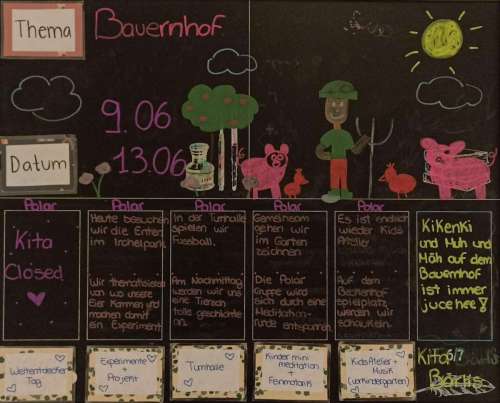 Thema
Bauernhof
9.06
13.06
Datum
Polar
Polar
Polar
Polar
Polar
Kita
Closed
Heute besuchen
wir die Enten
im Irchelpark.
Wir thematisieren
von wo unsere
Eier kommen und
machen damit
ein Experiment
In der Turnhalle
spielen wir
Fussball.
Am Nachmittag
werden wir uns
eine Tiersch
tolle geschichte
an.
Gemeinsam
gehen wir
im Garten
zeichnen
Die Polar
gruppe wird
sich durch eine
Meditation-
runde entspannen.
Es ist endlich
wieder Kids
Atelier
Auf dem
Spielplatz
werden wir
schaukeln.
Kikeriki
und Muh und
Mäh auf dem
Bauernhof
ist immer
juchee!
Weltentdecker
Tag
Experimente
+
Projekt
Turnhalle
Kinder mini
meditation
+
Feinmotorik
Kids Atelier +
Musik
(Vorkindergarten)
Kita